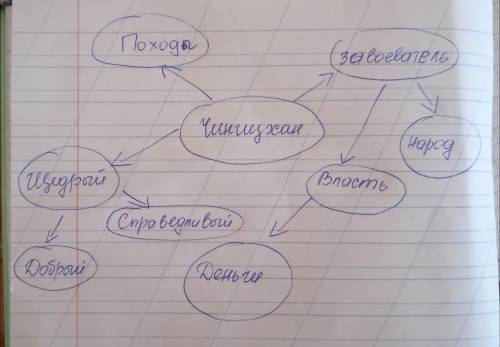 Походы
завоеватель
Чингизхан
народ
Щедрый
Власть
Справедливый
Добрый
Деньги